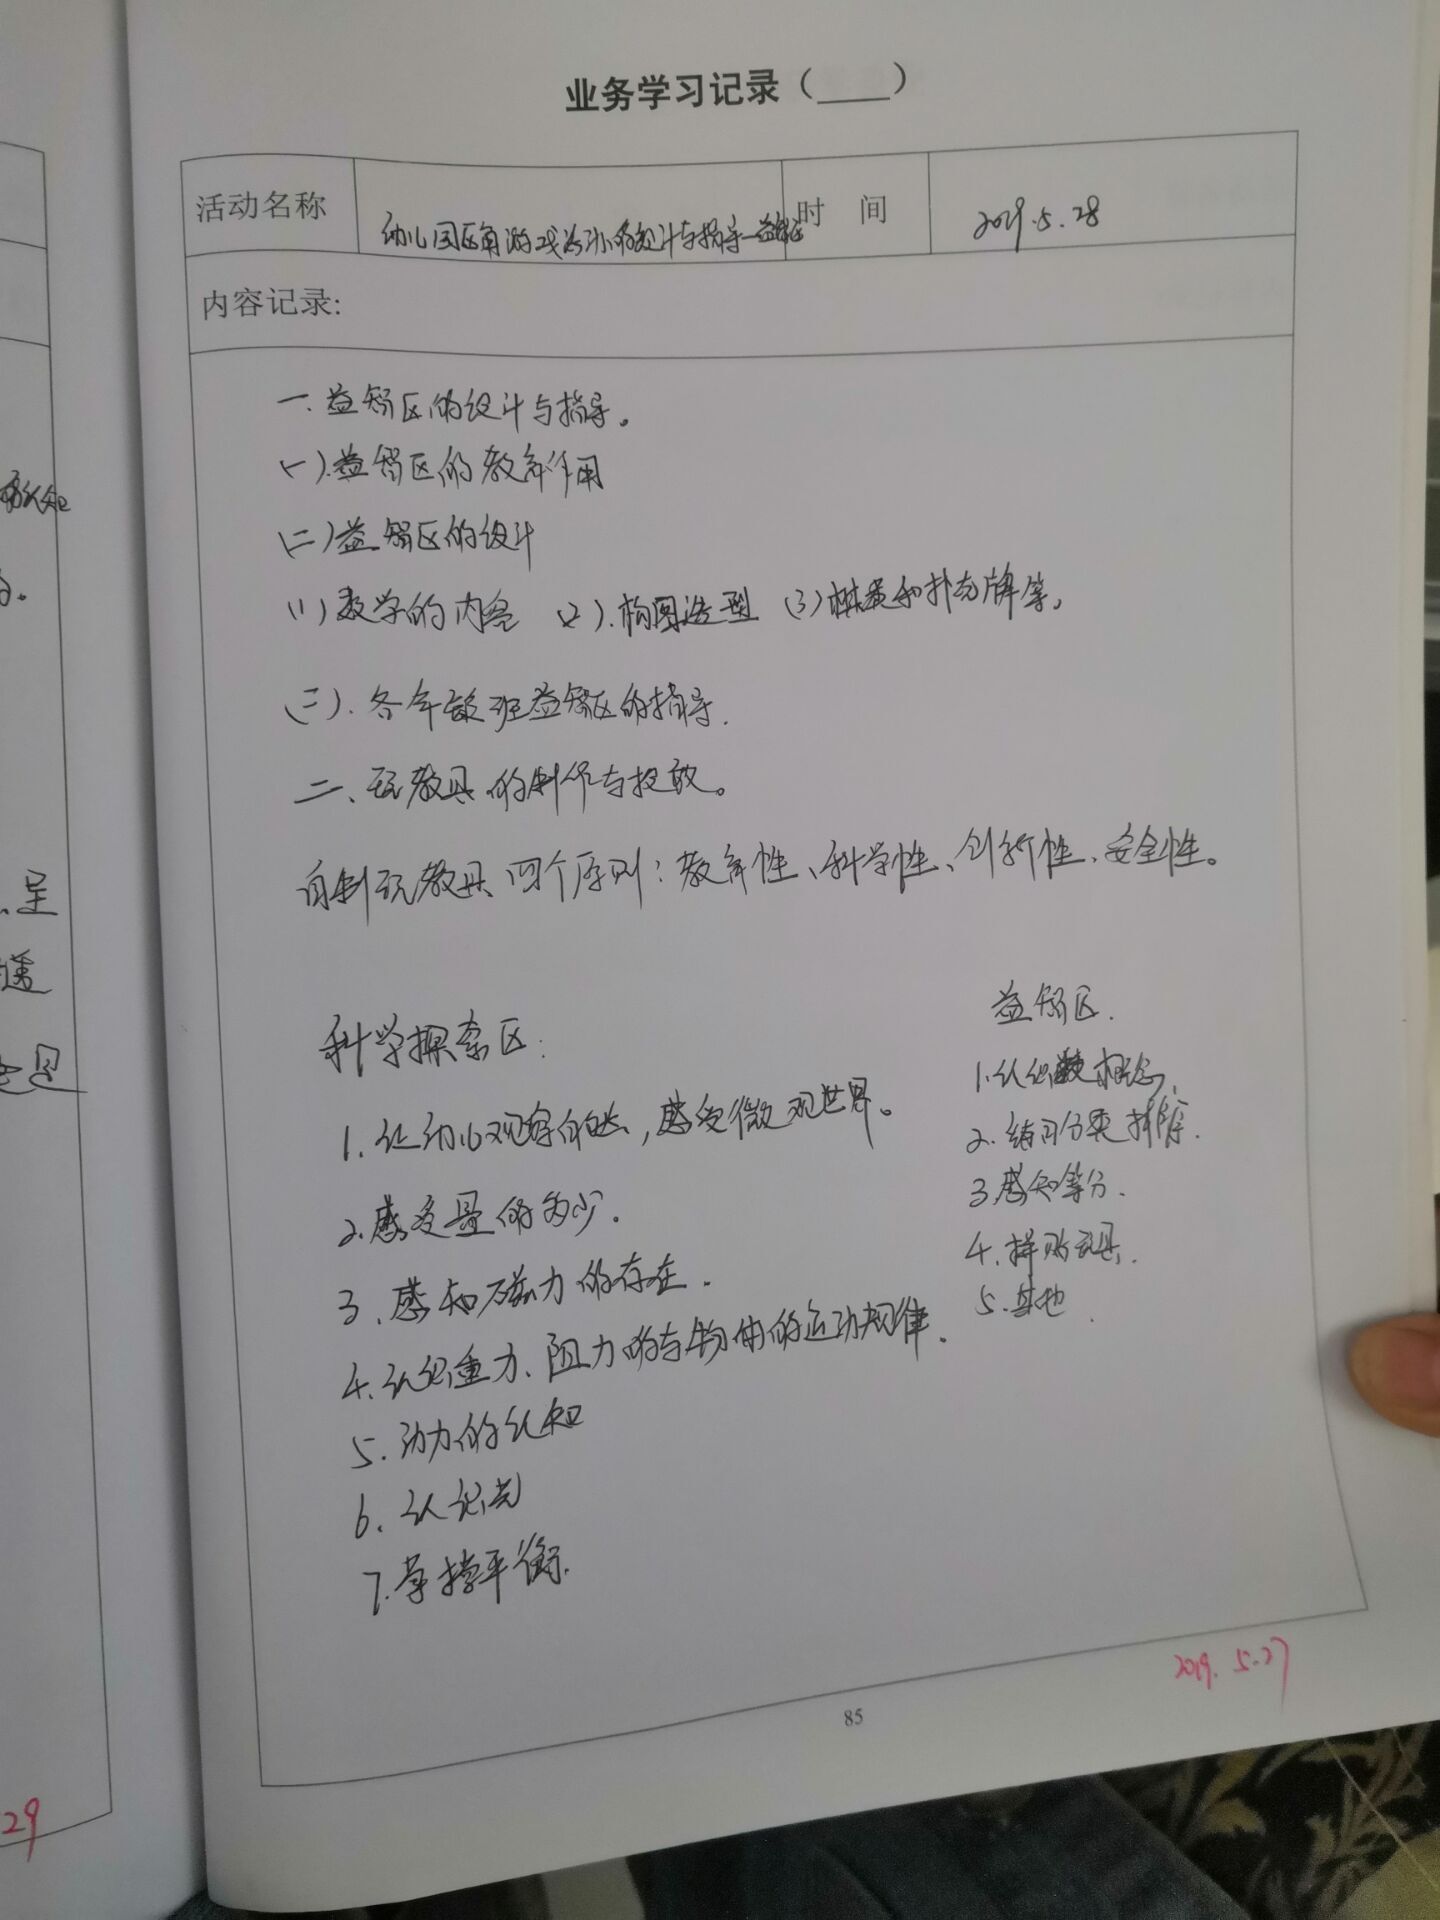 业务学习记录（____）
活动名称 幼儿园区角游戏活动的设计与指导—益智区 时 间 2019.5.28
内容记录:
一.益智区的设计与指导。
(一).益智区的教育作用
(二)益智区的设计
(1)数学的内容 (2).构图造型 (3)棋类和扑克牌等.
(三).各年龄班益智区的指导.
二、玩教具的制作与投放。
自制玩教具四个原则:教育性、科学性、创新性、安全性。
科学探索区:
1.让幼儿观察自然,感受微观世界。
2.感受量的多少.
3.感知磁力的存在.
4.认识重力、阻力 与物体的运动规律.
5.动力的认知
6.认识光
7.掌握平衡.
益智区.
1.认识数概念.
2.练习分类排序.
3.感知等分.
4.拼贴玩具.
5.其他
2019.5.27
85
认知
呈
29